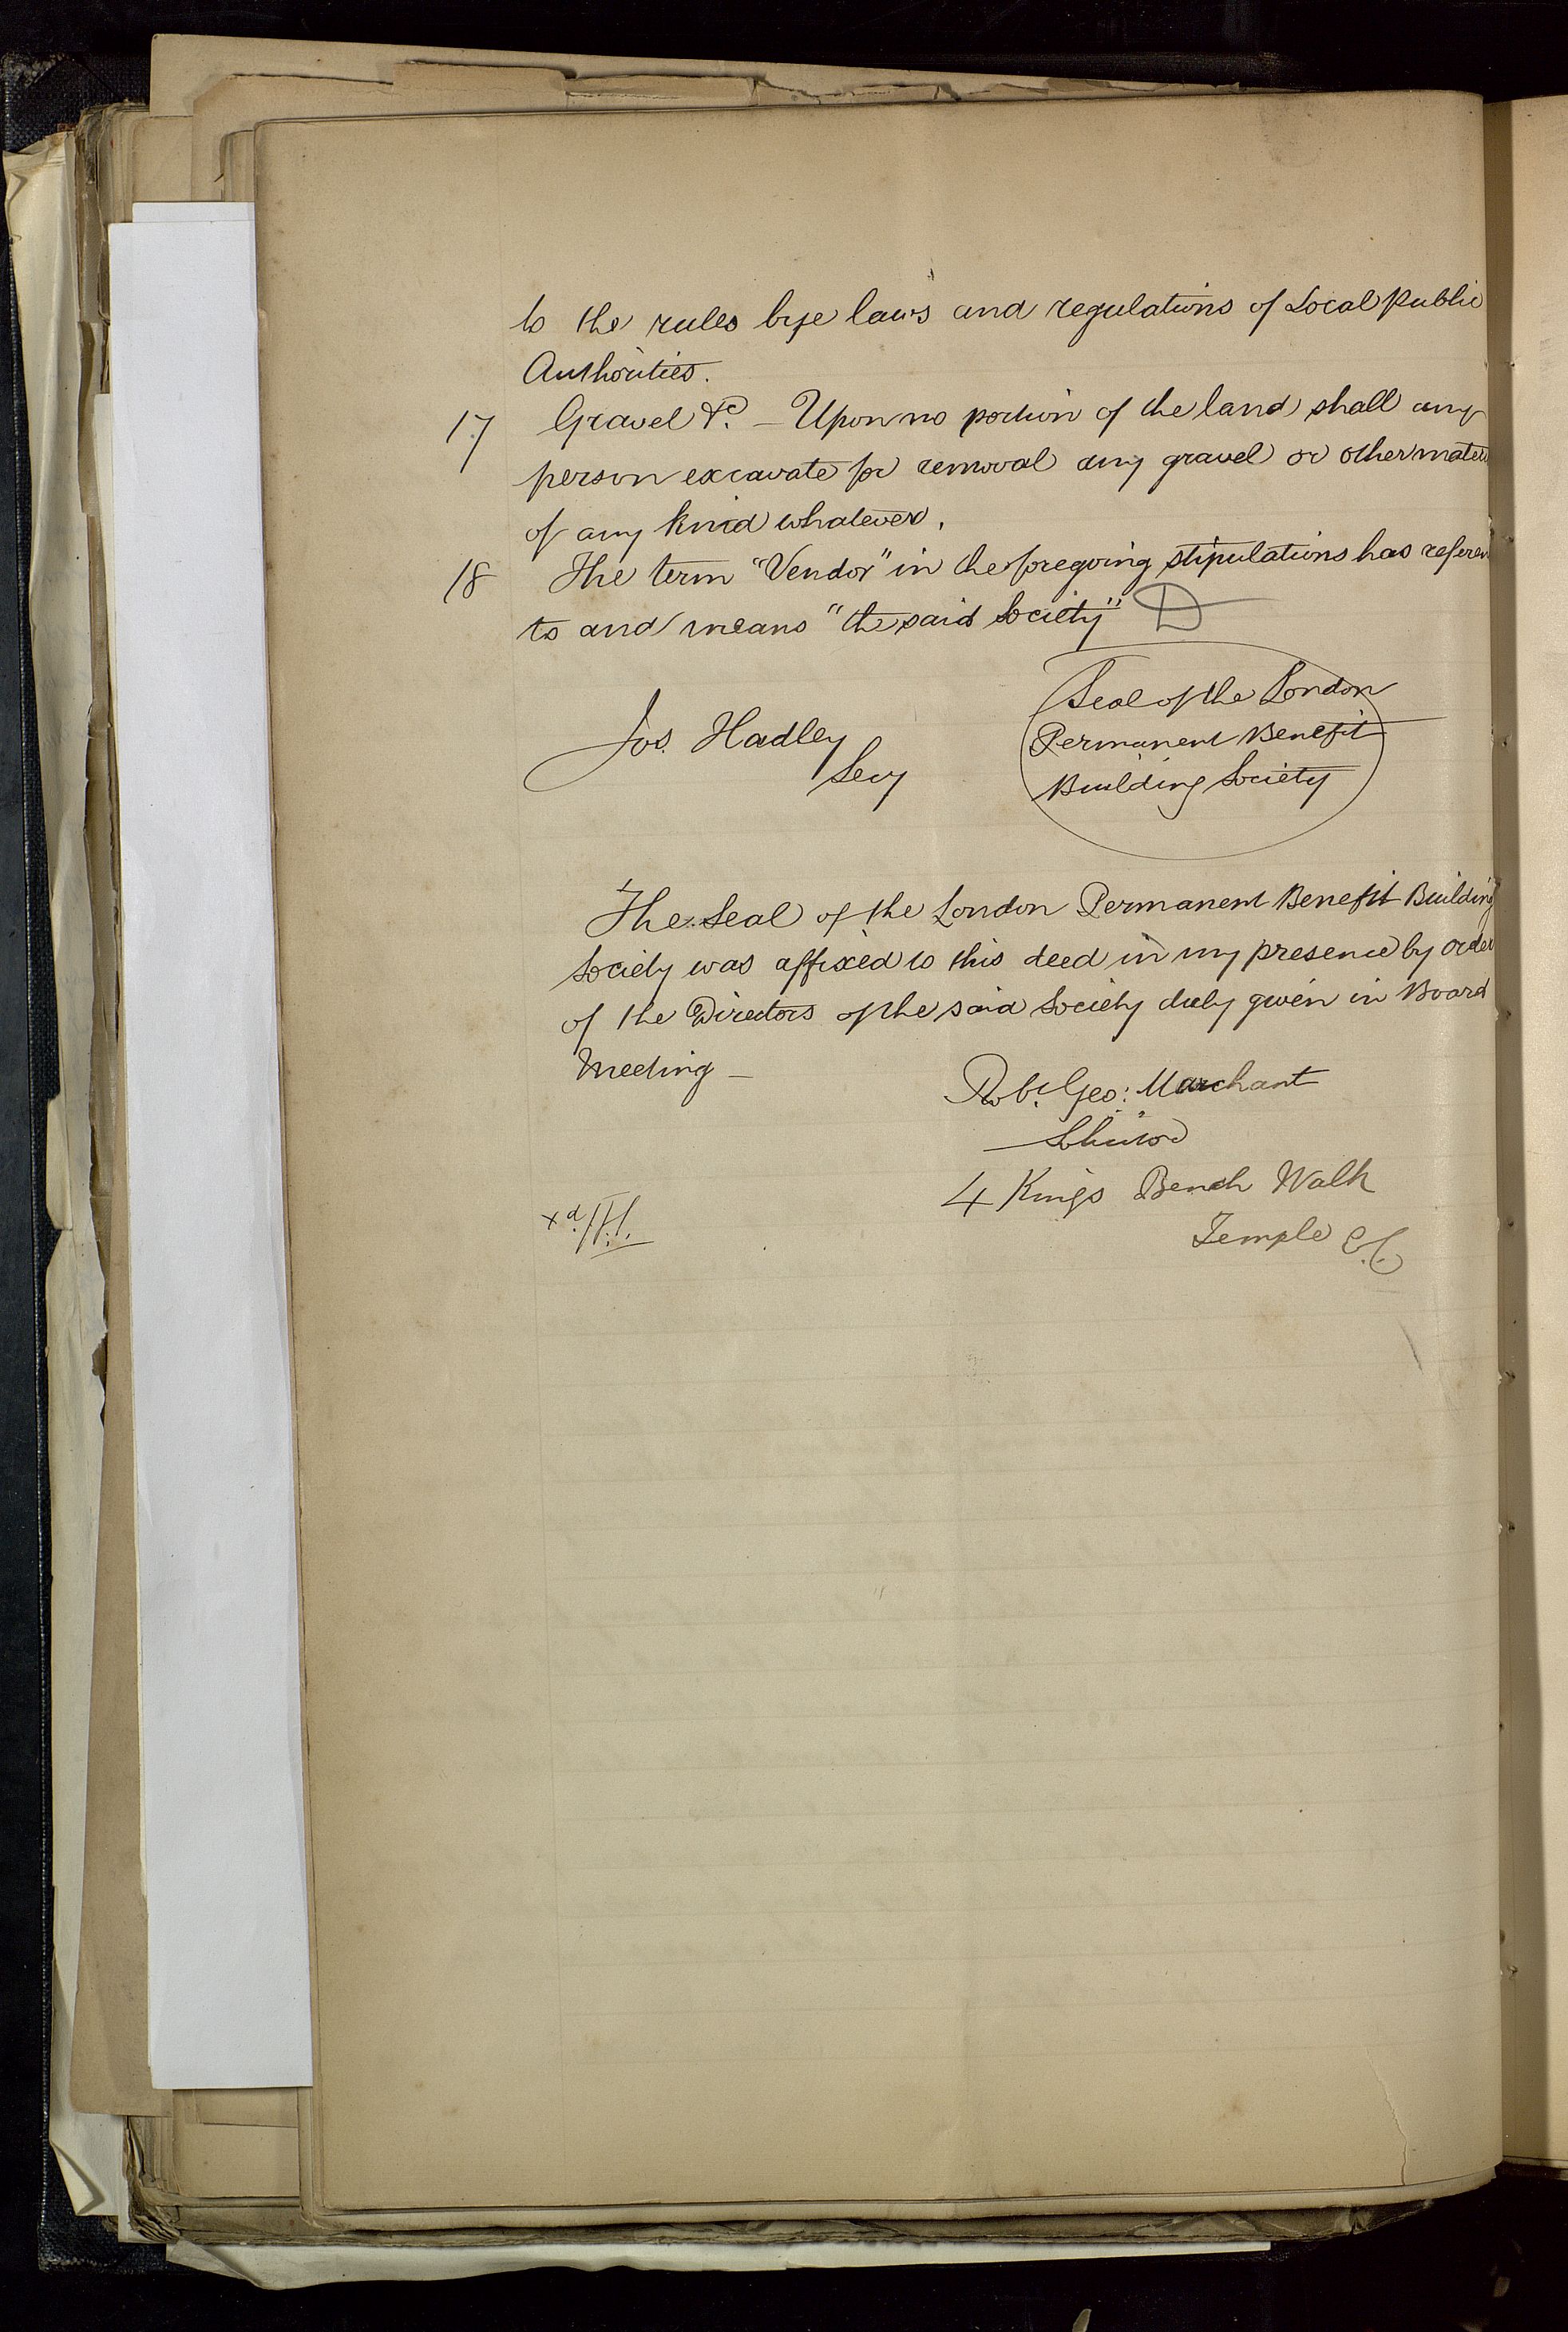 to the rules bye laws and regulations of Local Public
Authorities.
17 Gravel &c. – Upon no portion of the land shall any
person excavate for removal any gravel or other
of any kind whatever.
18 The term "Vendor" in the foregoing stipulations has
to and means "the said Society"
Seal of the London
Permanent Benefit
Building Society
Jos. Hadley
Secy
The Seal of the London Permanent Benefit Building
Society was affixed to this deed in my presence by order
of the Directors of the said Society duly given in Board
Meeting –
Robt. Geo: Marchant
4 Kings Bench Walk
Temple E.C.